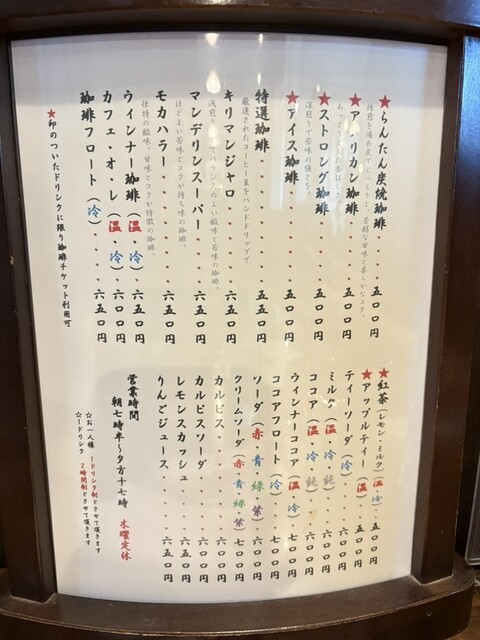 ★らんたん炭焼珈琲・・・・五五〇円
焙煎を備長炭でじっくりと。芳醇な甘味と柔らかなコク。
★アメリカン珈琲・・・・五五〇円
★ストロング珈琲・・・・五五〇円
深煎りで苦味の強さを。
★アイス珈琲・・・・五五〇円
特選珈琲・・・・五五〇円
厳選されたコーヒー豆をハンドドリップで
キリマンジャロ・・・・六五〇円
浅煎りでバランスのいい酸味と苦味の珈琲。
マンデリンスーパー・・・・六五〇円
ほどよい苦味とコクが持ち味の珈琲。
モカハラー・・・・六五〇円
独特の酸味、甘味とコクが特徴の珈琲。
ウィンナー珈琲(温・冷)・・六五〇円
カフェ・オーレ(温・冷)・・六〇〇円
珈琲フロート(冷)・・・・六五〇円
★印のついたドリンクに限り珈琲チケット利用可
★紅茶(レモン・ミルク)(温・冷)・・五五〇円
★アップルティー(温)・・・五五〇円
ティーソーダ(冷)・・・・六〇〇円
ミルク(温・冷・鈍)・・・六〇〇円
ココア(温・冷・鈍)・・・六〇〇円
ウィンナーココア(温・冷)・七〇〇円
ココアフロート(冷)・・・七〇〇円
ソーダ(赤・青・緑・紫)・・六〇〇円
クリームソーダ(赤・青・緑・紫)七〇〇円
カルピス・・・・六〇〇円
カルピスソーダ・・・・六〇〇円
レモンスカッシュ・・・・六五〇円
りんごジュース・・・・六五〇円
営業時間
朝七時半〜夕方十七時 木曜定休
☆お一人様 1ドリンク制とさせて頂きます
☆1ドリンク 2時間制とさせて頂きます